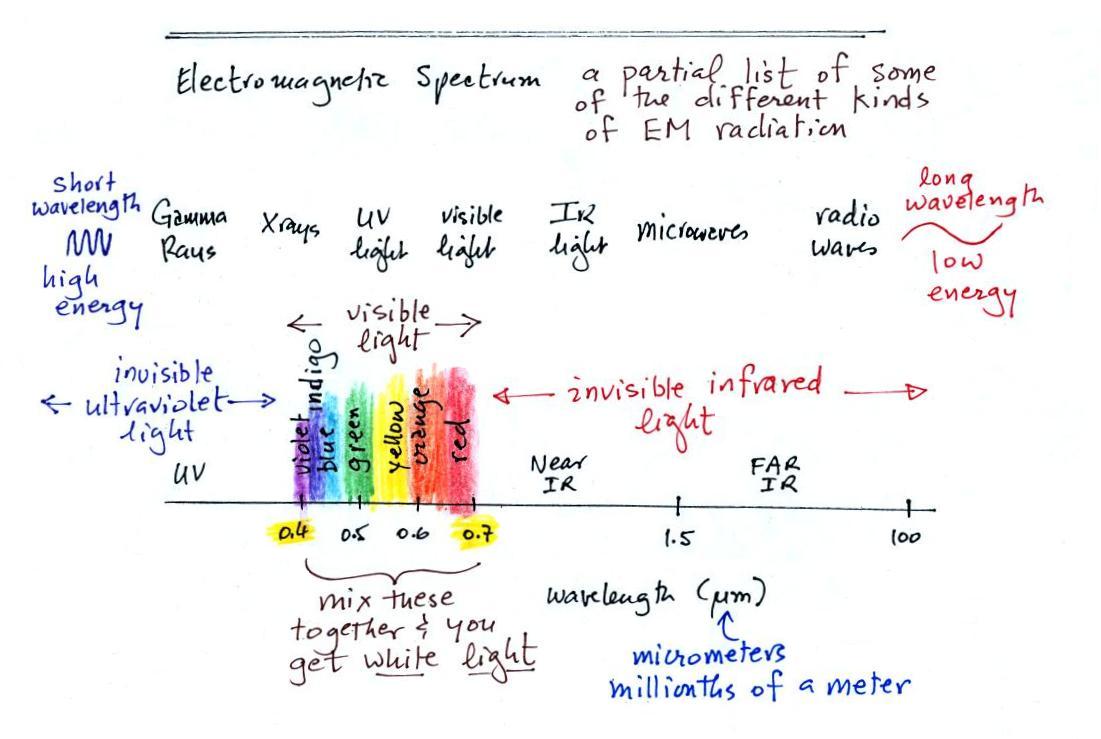 Electromagnetic Spectrum
a partial list of some
of the different kinds
of EM radiation
short
wavelength
high
energy
Gamma
Rays
Xrays
UV
light
visible
light
IR
light
microwaves
radio
waves
long
wavelength
low
energy
visible
light
invisible
ultraviolet
light
UV
violet
indigo
blue
green
yellow
orange
red
invisible infrared
light
Near
IR
FAR
IR
0.4
0.5
0.6
0.7
1.5
100
mix these
together & you
get white light
wavelength (μm)
micrometers
millionths of a meter